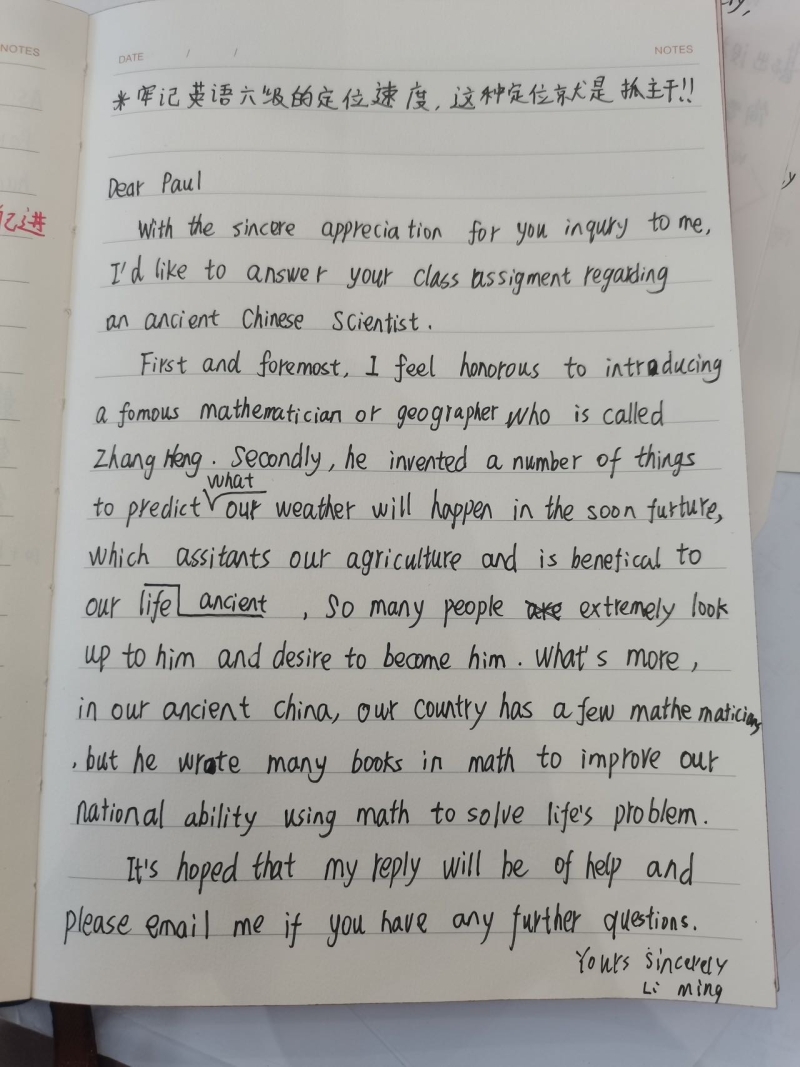 NOTES
DATE / /
NOTES
*牢记英语六级的定位速度，这种定位就是抓主干!!
Dear Paul
With the sincere appreciation for you inqury to me,
I'd like to answer your class assigment regarding
an ancient Chinese Scientist.
First and foremost, I feel honorous to introducing
a fomous mathematician or geographer who is called
Zhang Heng. Secondly, he invented a number of things
what
to predict our weather will happen in the soon furture,
which assitants our agriculture and is benefical to
our life ancient, So many people are extremely look
up to him and desire to become him. What's more,
in our ancient China, our country has a few mathematicians
, but he wrote many books in math to improve our
national ability using math to solve life's problem.
It's hoped that my reply will be of help and
please email me if you have any further questions.
Yours Sincerely
Li ming